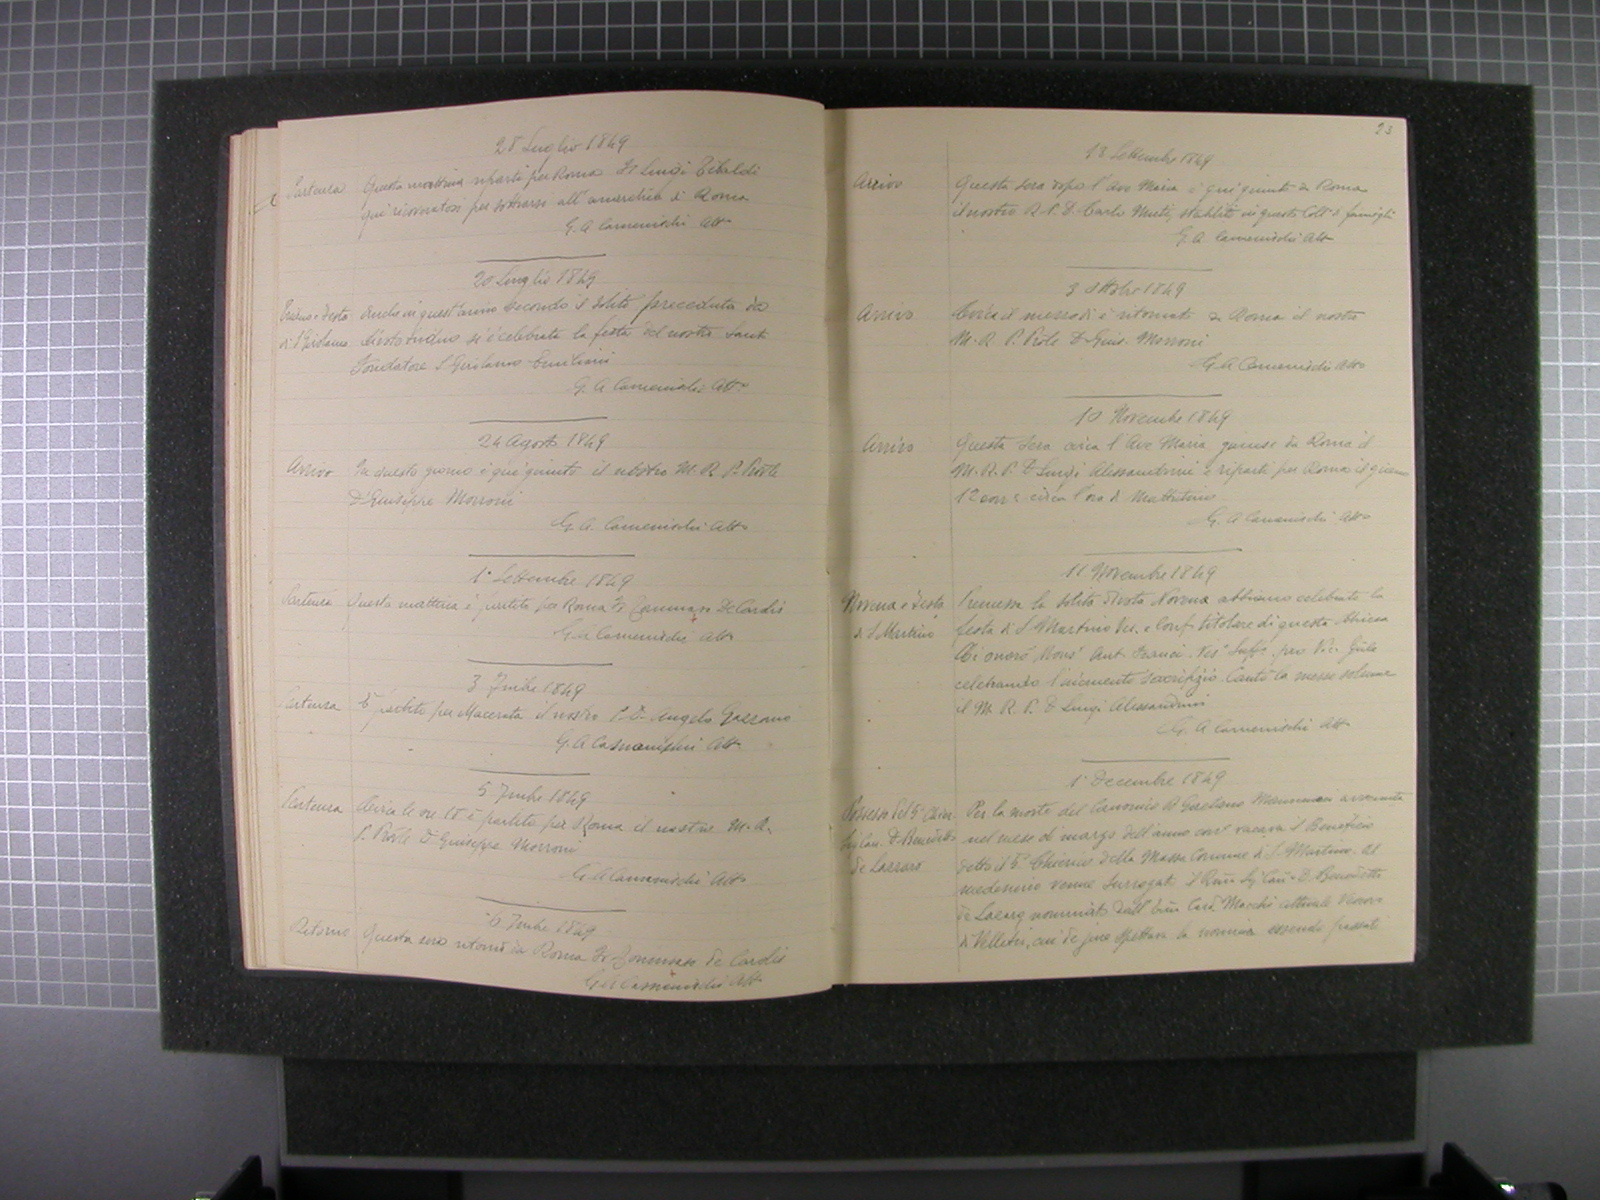 28 Luglio 1849
Partenza Questa mattina ripartì per Roma Fr Luigi Tibaldi
qui ricoveratosi per sottrarsi all'anarchia di Roma
G. A Camenischi Att
20 Luglio 1849
Triduo e Festa Anche in quest'anno secondo il solito preceduta da
di S Girolamo divoto triduo si è celebrata la festa del nostro Santo
Fondatore S Girolamo Emiliani
G. A Camenischi Atto
24 Agosto 1849
Arrivo In questo giorno è qui giunto il nostro M. R. P. Prole
D Giuseppe Morroni
G. A. Camenischi Atto
1° Settembre 1849
Partenza Questa mattina è partito per Roma Fr Tommaso De Cardis
G A Camenischi Att
3 7mbre 1849
Partenza È partito per Macerata il nostro P. D. Angelo Gassano
G. A Camenischi Att.
5 7mbre 1849
Partenza Circa le ore 18 è partito per Roma il nostro M. R.
P. Prole D Giuseppe Morroni
G A Camenischi Atto
6 7mbre 1849
Ritorno Questa sera ritornò da Roma Fr Tommaso de Cardis
G A Camenischi Att
23
13 Settembre 1849
Arrivo Questa sera dopo l'Ave Maria è qui giunto da Roma
il nostro R. P. D. Carlo Muti, stabilito in questo Coll° di famiglia
G. A Camenischi Att
3 Ottobre 1849
Arrivo Circa il mezzodì è ritornato da Roma il nostro
M. R. P. Prole D Gius. Morroni
G A Camenischi Atto
10 Novembre 1849
Arrivo Questa sera circa l'Ave Maria giunse da Roma il
M. R. P. D Luigi Alessandrini e ripartì per Roma il giorno
12 corr e circa l'ora di Mattutino
G. A Camenischi Atto
11 Novembre 1849
Novena e Festa Premessa la solita divota Novena abbiamo celebrata la
di S Martino festa di S Martino Ves. e Conf. titolare di questa Chiesa
Ci onorò Mons° Ant Franci. Ves° Suff. pro Vic. Gñle
celebrando l'incruento Sacrifizio. Cantò la messa solenne
il M. R. P. D Luigi Alessandrini
G. A Camenischi Att
1° Decembre 1849
Possesso del 5° Chier. Per la morte del Canonico D Gaetano avvenuta
Sig Can. D. Benedetto nel mese di marzo dell'anno corr° vacava il Beneficio
de Lazzaro detto il 5° Chierico della Massa Comune di S. Martino. Al
medesimo venne surrogato il Rmo Sig Can° D. Benedetto
de Lazaro nominato dall'Emo Card Macchi attuale Vescovo
di Velletri, cui de jure spettava la nomina essendo passati